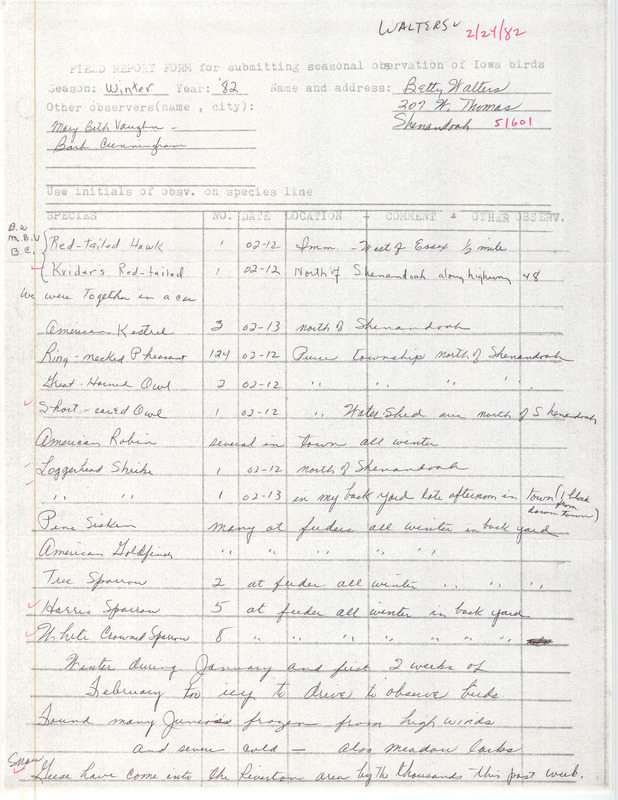 WALTERS ✓ 2/24/82
FIELD REPORT FORM for submitting seasonal observation of Iowa birds
Season: Winter Year: '82 Name and address: Betty Walters
Other observers(name , city): 207 W. Thomas
Mary Beth Vaughn - Shenandoah 51601
Barb Cunningham
Use initials of obsv. on species line
SPECIES NO. DATE LOCATION - COMMENT & OTHER OBSERV.
B.W
M.B.V
B.C.
Red-tailed Hawk 1 02-12 Imm. - West of Essex 1/2 mile
✓ Krider's Red-tailed 1 02-12 North of Shenandoah along highway 48
We were Together in a car
American Kestrel 3 02-13 north of Shenandoah
Ring-necked Pheasant 124 02-12 Pierce Township north of Shenandoah
Great-Horned Owl 2 02-12 " " " "
✓ Short-eared Owl 1 02-12 " Water Shed area north of Shenandoah
American Robin several in town all winter
✓ Loggerhead Shrike 1 02-12 north of Shenandoah
✓ " " 1 02-13 in my back yard late afternoon in town (1 block from down town)
Pine Siskin many at feeders all winter in back yard
American Goldfinch " " " " "
Tree Sparrow 2 at feeder all winter " " "
✓ Harris Sparrow 5 at feeder all winter in back yard
✓ White Crowned Sparrow 8 " " " " " " "
Winter during January and first 2 weeks of
February too icy to drive to observe birds
Found many Juncos frozen from high winds
and severe cold - also meadow larks
✓ Snow Geese have come into the Riverton area by the thousands this past week.